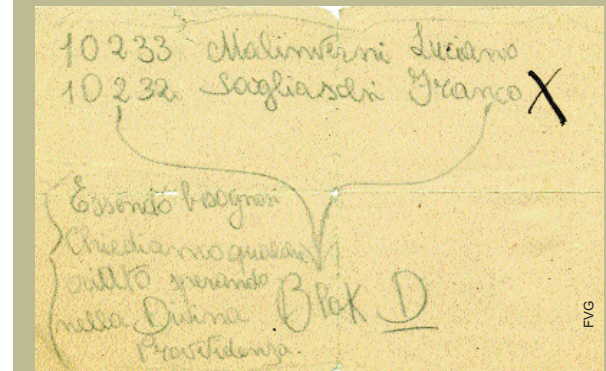 10233 Malinverni Luciano
10232 Franco X
Essendo bisognosi
Chiediamo qualche
aiuto sperando
nella Divina
Provvidenza.
Blok D
FVG